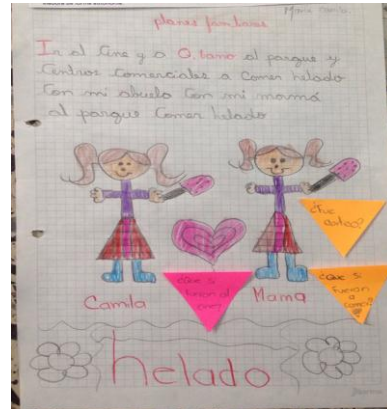 planes familiares
Ir al Cine y a O, tomo al parque y
Centros Comerciales a Comer helado
Con mi abuela Con mi mamá
al parque Comer helado
¿Fue
¿Que si
fueron al
cine?
¿Que si
fueron
a
comer?
Camila
Mama
helado